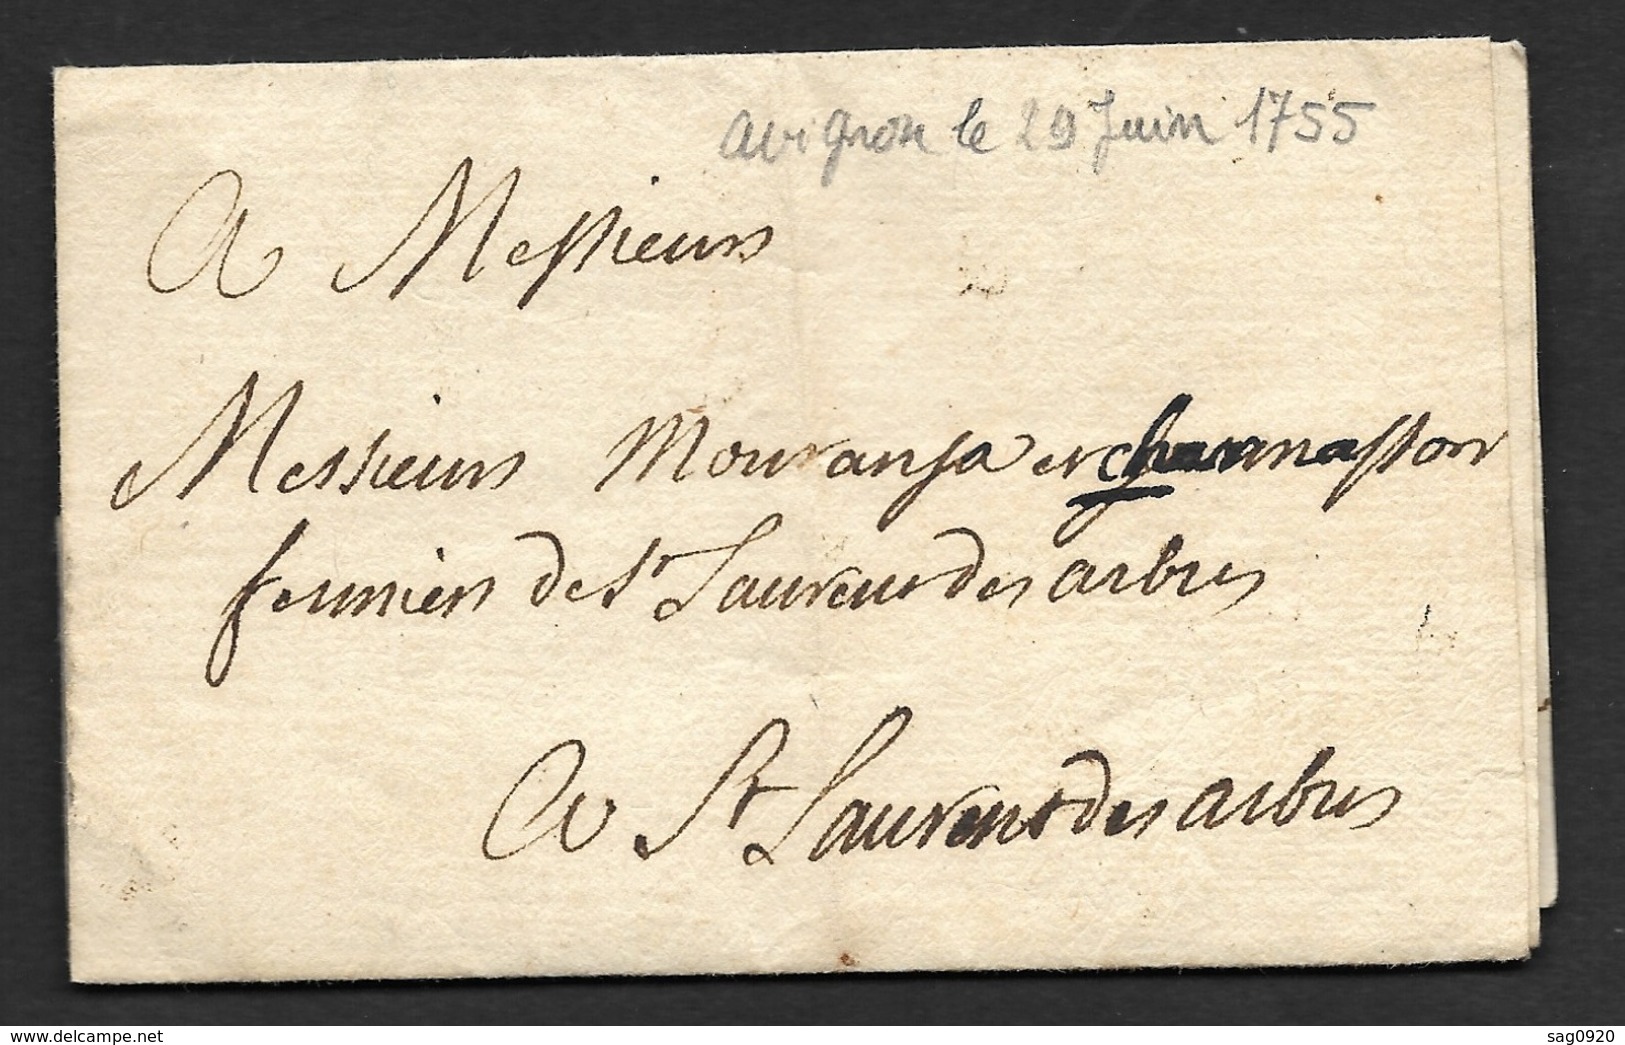 avignon le 29 Juin 1755
A Messieurs
Messieurs Mouransa et charmasson
fermiers de St Laurent des arbres
A St Laurent des arbres
© delcampe.net
sag0920